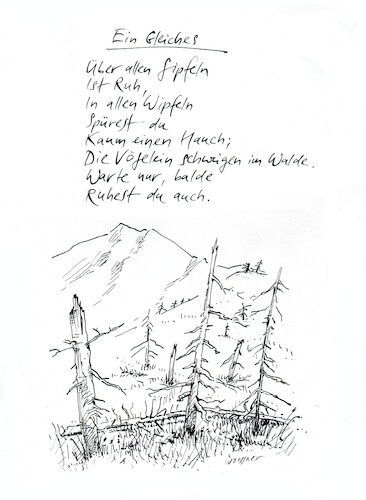 Ein Gleiches
Über allen Gipfeln
Ist Ruh,
In allen Wipfeln
Spürest du
Kaum einen Hauch;
Die Vögelein schweigen im Walde.
Warte nur, balde
Ruhest du auch.